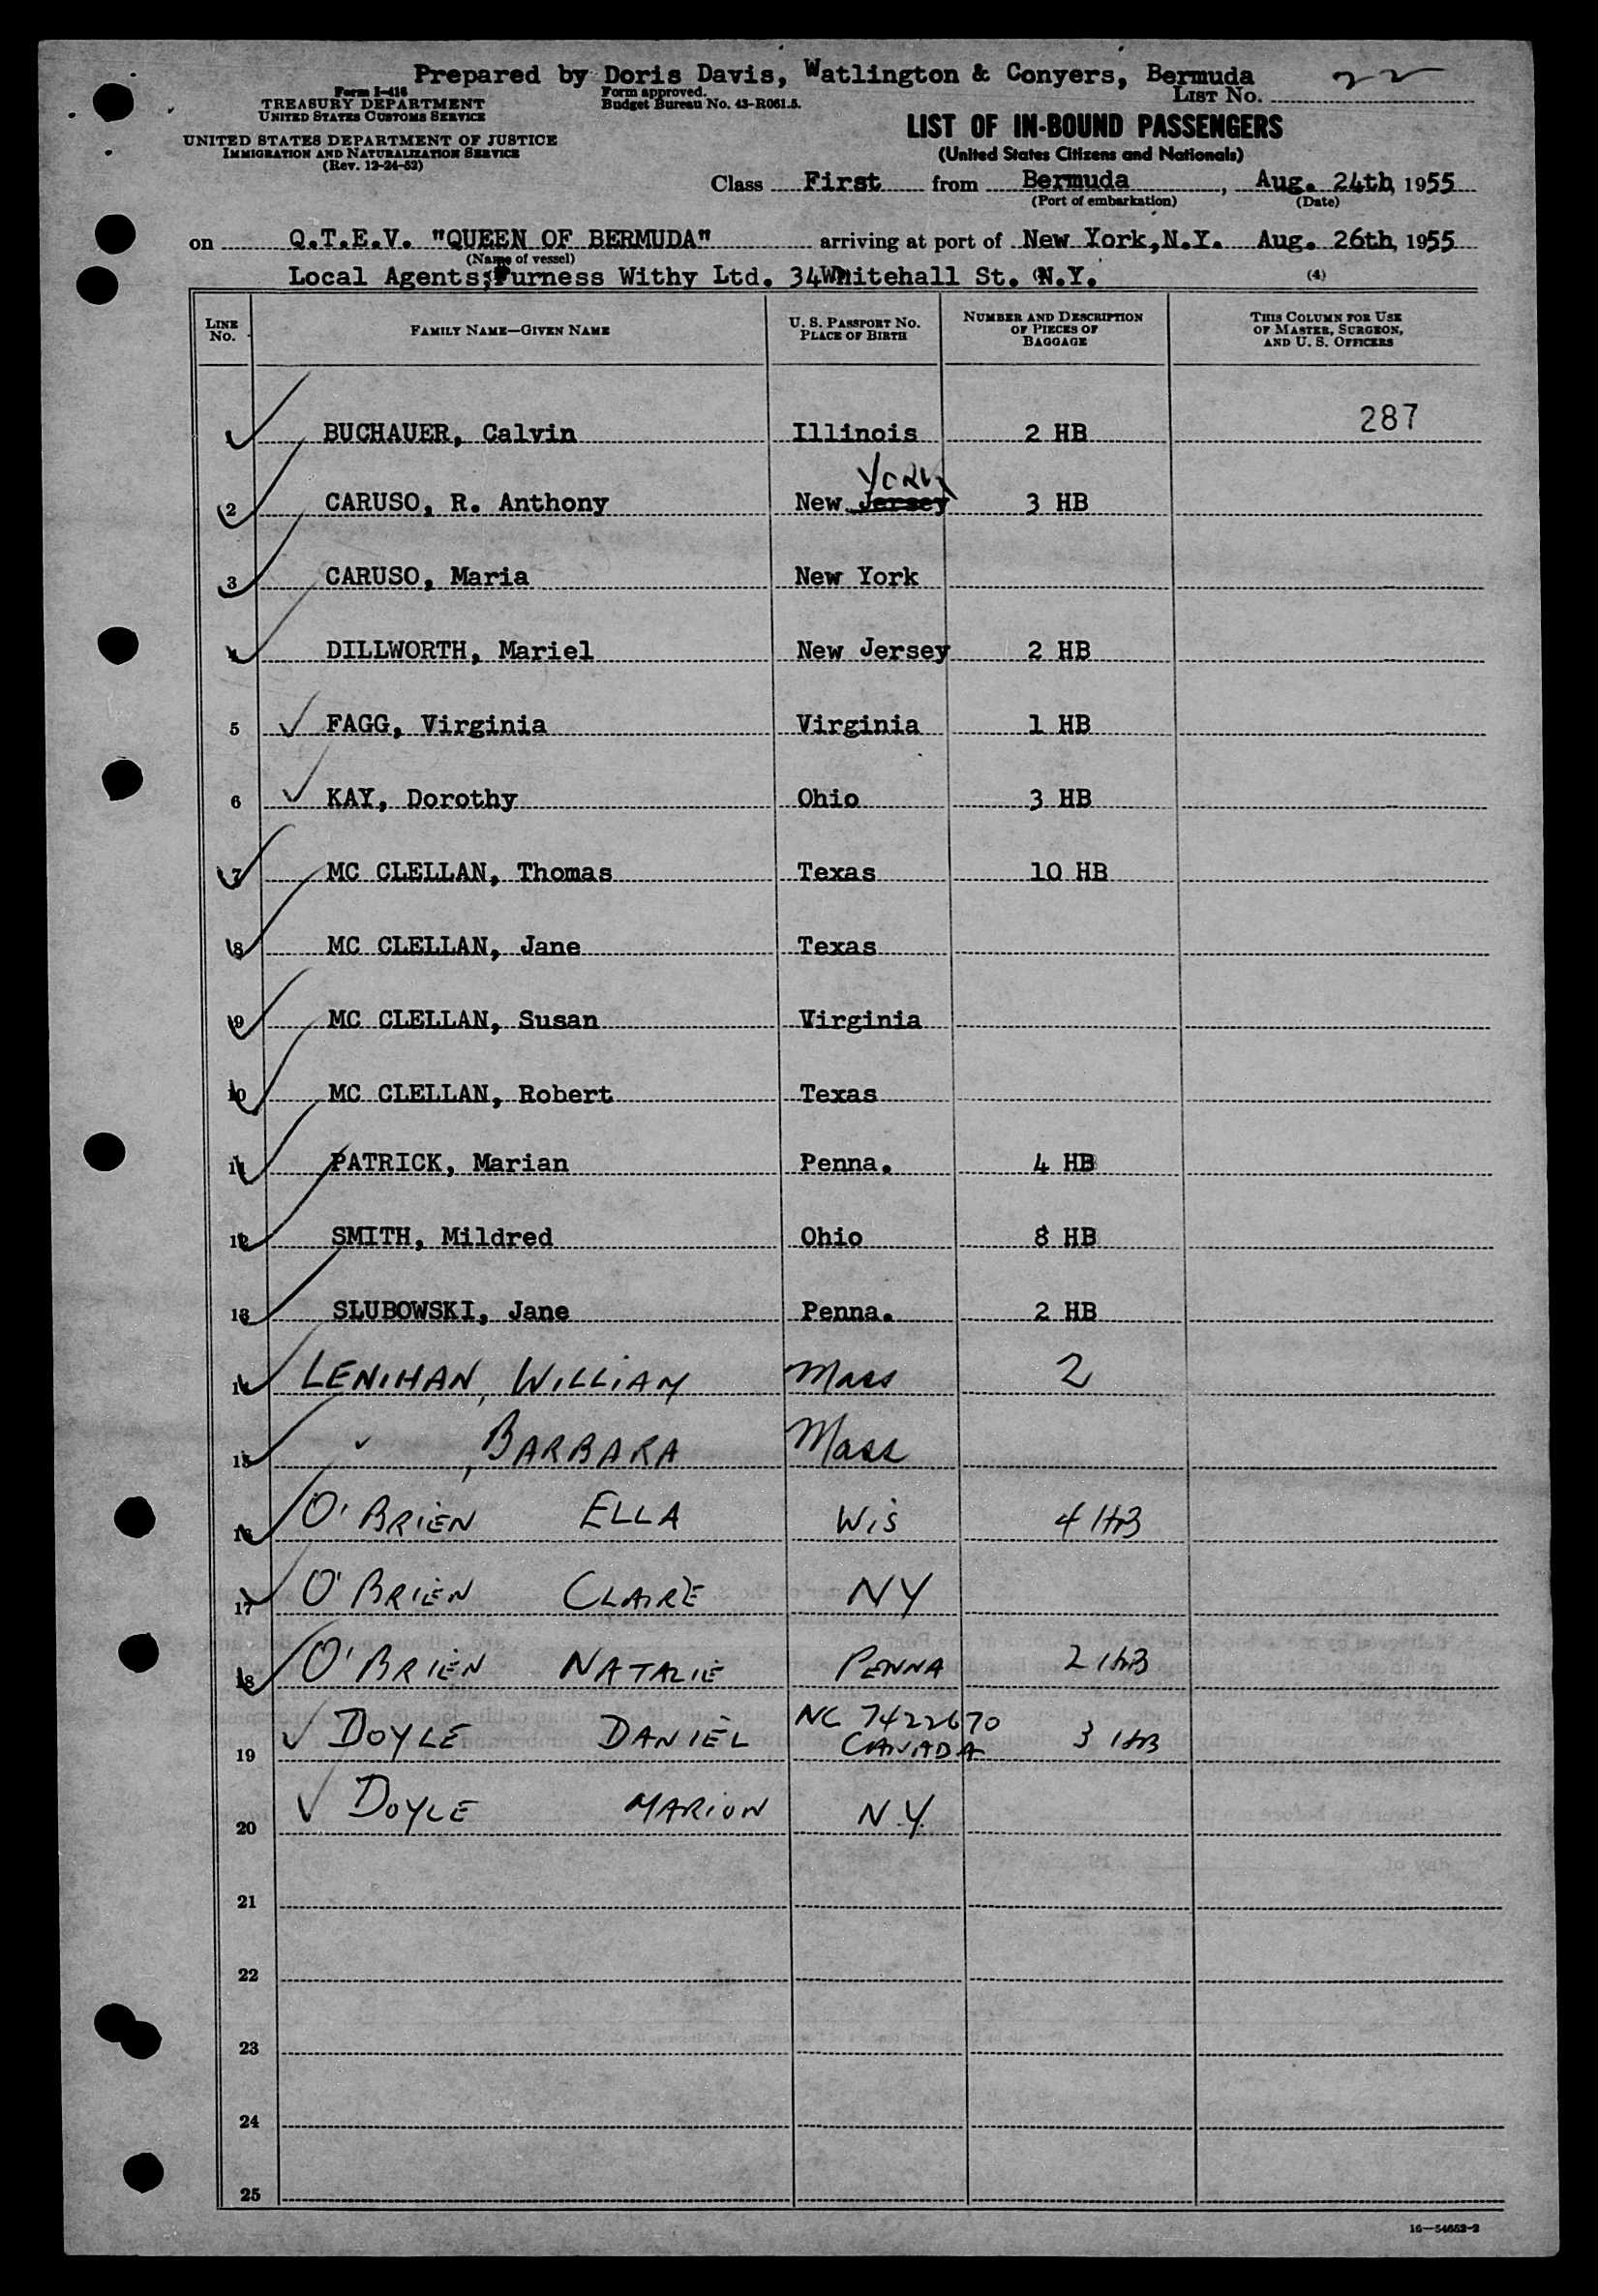 Prepared by Doris Davis, Watlington & Conyers, Bermuda
Form I-416
TREASURY DEPARTMENT
UNITED STATES CUSTOMS SERVICE
UNITED STATES DEPARTMENT OF JUSTICE
IMMIGRATION AND NATURALIZATION SERVICE
(Rev. 12-24-52)
Form approved.
Budget Bureau No. 43-R061.5.
LIST No. 22
LIST OF IN-BOUND PASSENGERS
(United States Citizens and Nationals)
Class First from Bermuda, Aug. 24th, 1955
(Port of embarkation) (Date)
on Q.T.E.V. "QUEEN OF BERMUDA" arriving at port of New York, N.Y. Aug. 26th, 1955
(Name of vessel)
Local Agents; Furness Withy Ltd. 34 Whitehall St. N.Y.
(4)
LINE No. FAMILY NAME—GIVEN NAME U. S. PASSPORT No. PLACE OF BIRTH NUMBER AND DESCRIPTION OF PIECES OF BAGGAGE THIS COLUMN FOR USE OF MASTER, SURGEON, AND U. S. OFFICERS
1 BUCHAUER, Calvin Illinois 2 HB 287
2 CARUSO, R. Anthony New Jersey York 3 HB
3 CARUSO, Maria New York
4 DILLWORTH, Mariel New Jersey 2 HB
5 FAGG, Virginia Virginia 1 HB
6 KAY, Dorothy Ohio 3 HB
7 MC CLELLAN, Thomas Texas 10 HB
8 MC CLELLAN, Jane Texas
9 MC CLELLAN, Susan Virginia
10 MC CLELLAN, Robert Texas
11 PATRICK, Marian Penna. 4 HB
12 SMITH, Mildred Ohio 8 HB
13 SLUBOWSKI, Jane Penna. 2 HB
14 LENIHAN, WILLIAM Mass 2
15 " , BARBARA Mass
16 O'BRIEN ELLA Wis 4 HB
17 O'BRIEN CLAIRE NY
18 O'BRIEN NATALIE PENNA 2 HB
19 DOYLE DANIEL NC 7422670 CANADA 3 HB
20 DOYLE MARION N.Y.
21
22
23
24
25
16—54652-2